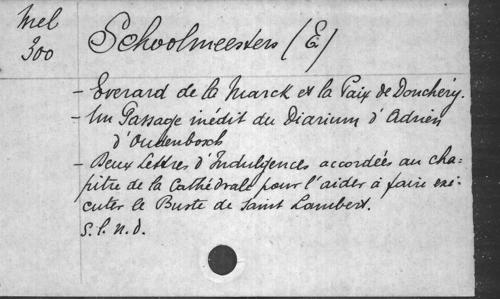 Mel
300
Schoolmeesters (E)
- Everard de la Marck et la Paix de Donchéry.
- Un Passage inédit du Diarium d'Adrien
d'Oudenbosch
- Deux Lettres d'Indulgences accordées au cha-
pitre de la Cathédrale pour l'aider à faire exé-
cuter le Buste de Saint Lambert.
S. l. n. d.